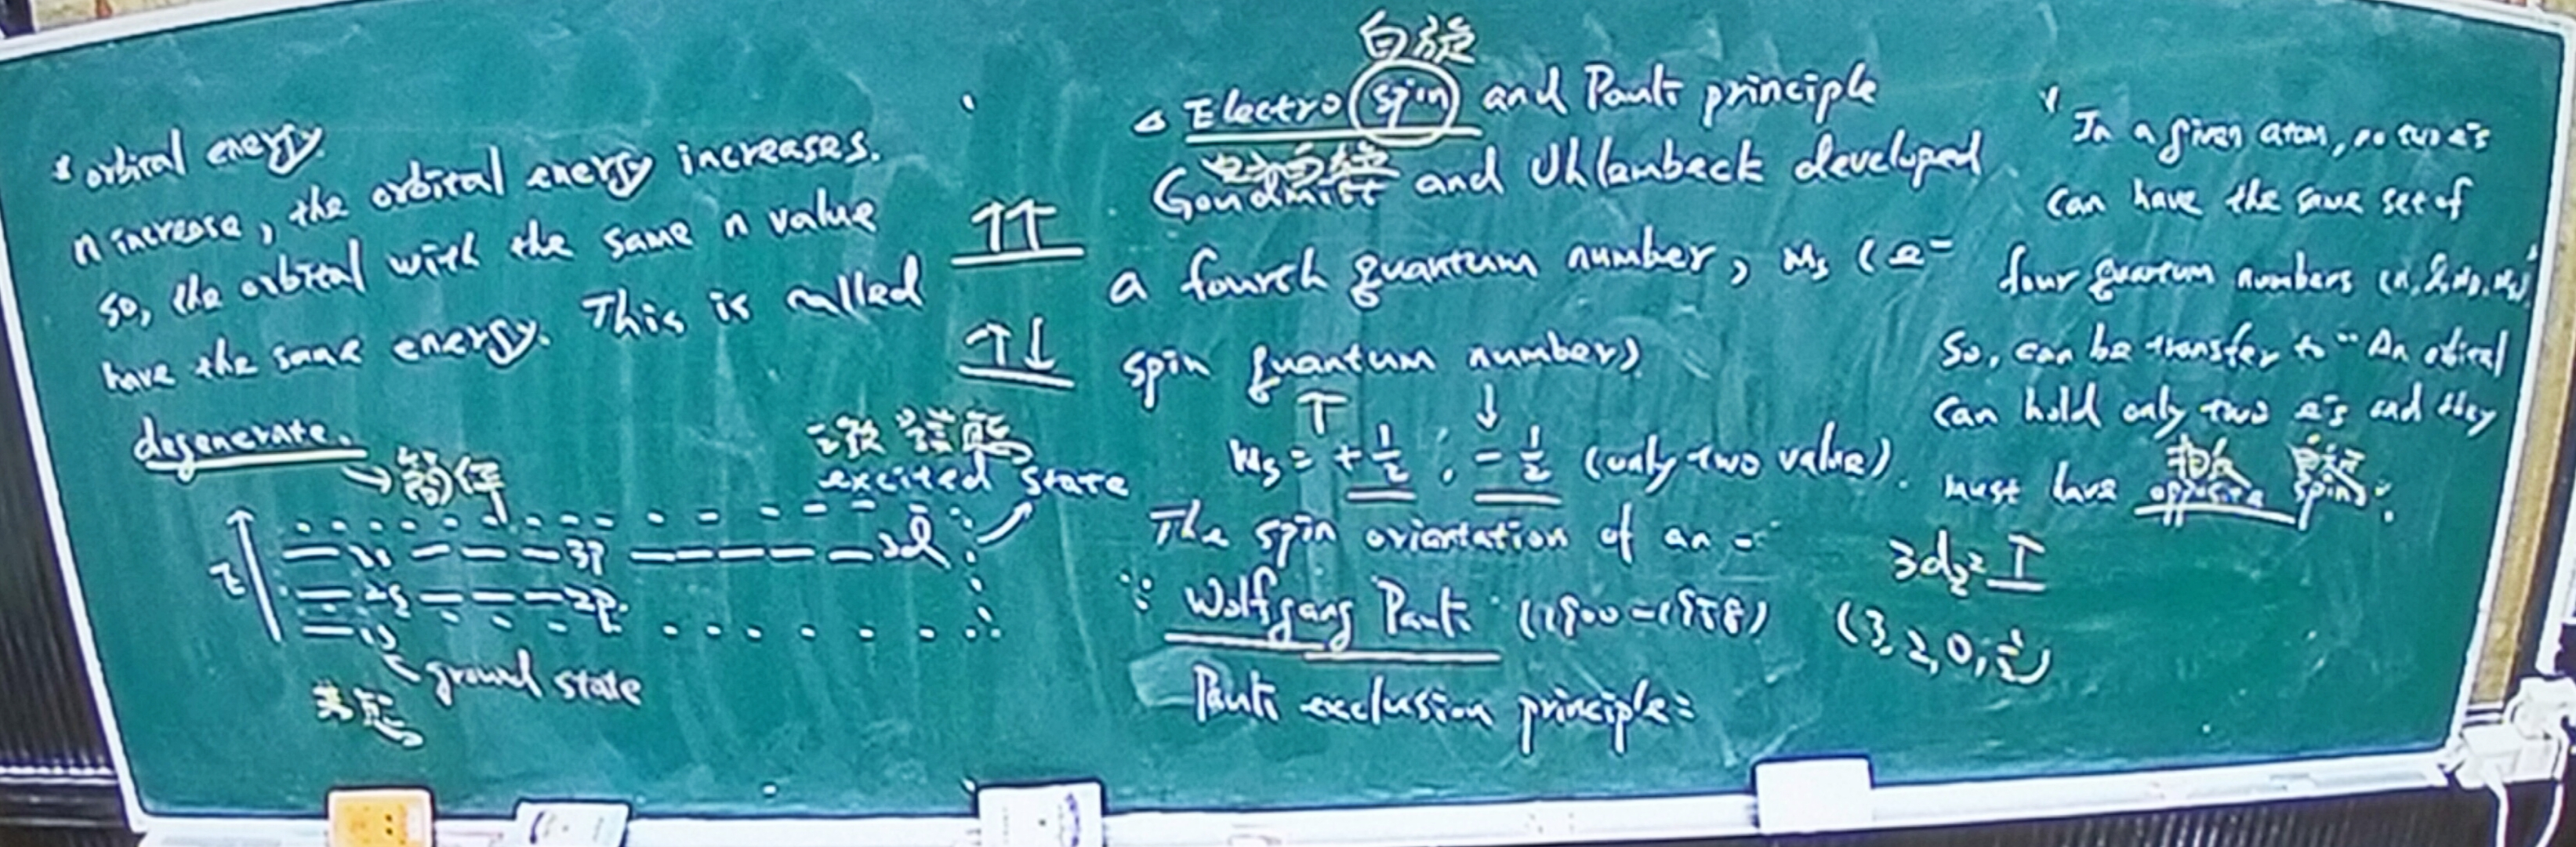 * orbital energy.
n increase, the orbital energy increases.
so, the orbital with the same n value
have the same energy. This is called
degenerate.
→ 簡併
激發態
excited state
E 3s 3p 3d
2s 2p
1s
ground state
基態
↑↑
↑↓
自旋
△ Electro spin and Pauli principle
電子自旋
Goudmist and Uhlembeck developed
a fourth quantum number, ms (e⁻
spin quantum number)
↑ ↓
ms = + 1/2 , - 1/2 (only two value).
The spin oriantation of an e⁻
∵ Wolfgang Pauli (1900-1958)
Pauli exclusion principle:
" In a given atom, no two e⁻s
can have the same set of
four quantum numbers (n, l, ml, ms)"
So, can be transfer to " An obital
can hold only two e⁻s and they
must have opposite spins.
3dz² ↑
(3, 2, 0, ½)